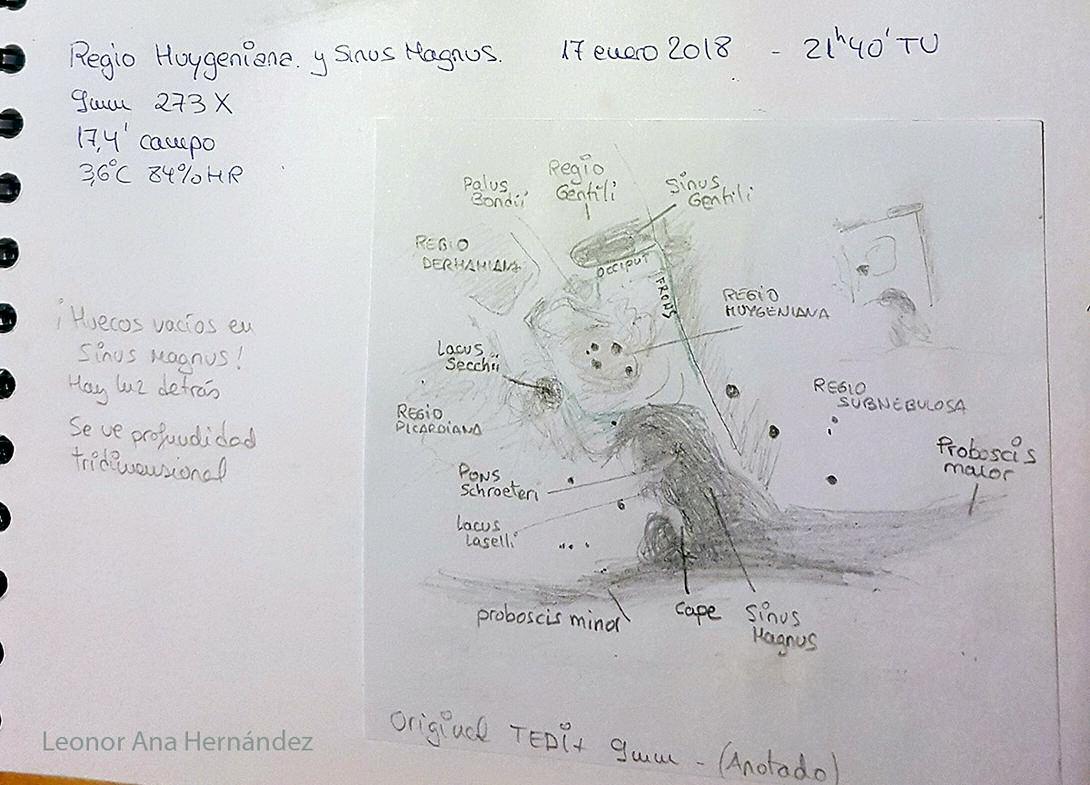 Regio Huygeniana. y Sinus Magnus. 17 enero 2018 - 21h40' TU
9mm 273X
17,4' campo
3,6°C 84%HR
¡Huecos vacíos en
Sinus Magnus!
Hay luz detrás
Se ve profundidad
tridimensional
Palus
Bondii
Regio
Gentili
Sinus
Gentili
REGIO
DERHAMIANA
OCCIPUT
FRONS
REGIO
HUYGENIANA
Lacus
Secchii
REGIO
PICARDIANA
REGIO
SUBNEBULOSA
Proboscis
maior
Pons
Schroeteri
Lacus
Laselli
proboscis minor
Cape
Sinus
Magnus
Original TEDi+ 9mm - (Anotado)
Leonor Ana Hernández